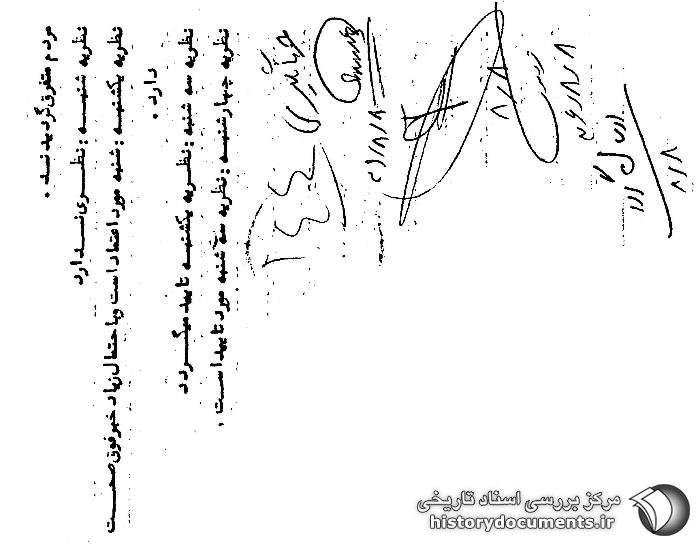 مردم متفرق گردیدند .
نظریه شنبه : نظری ندارد
نظریه یکشنبه : شنبه مورد اعتماد است و باحتمال زیاد خبر فوق صحت
دارد .
نظریه سه شنبه : نظریه یکشنبه تایید میگردد
نظریه چهارشنبه : نظریه سه شنبه مورد تایید است .
۸/۸
۸/۸
مرکز بررسی اسناد تاریخی
historydocuments.ir